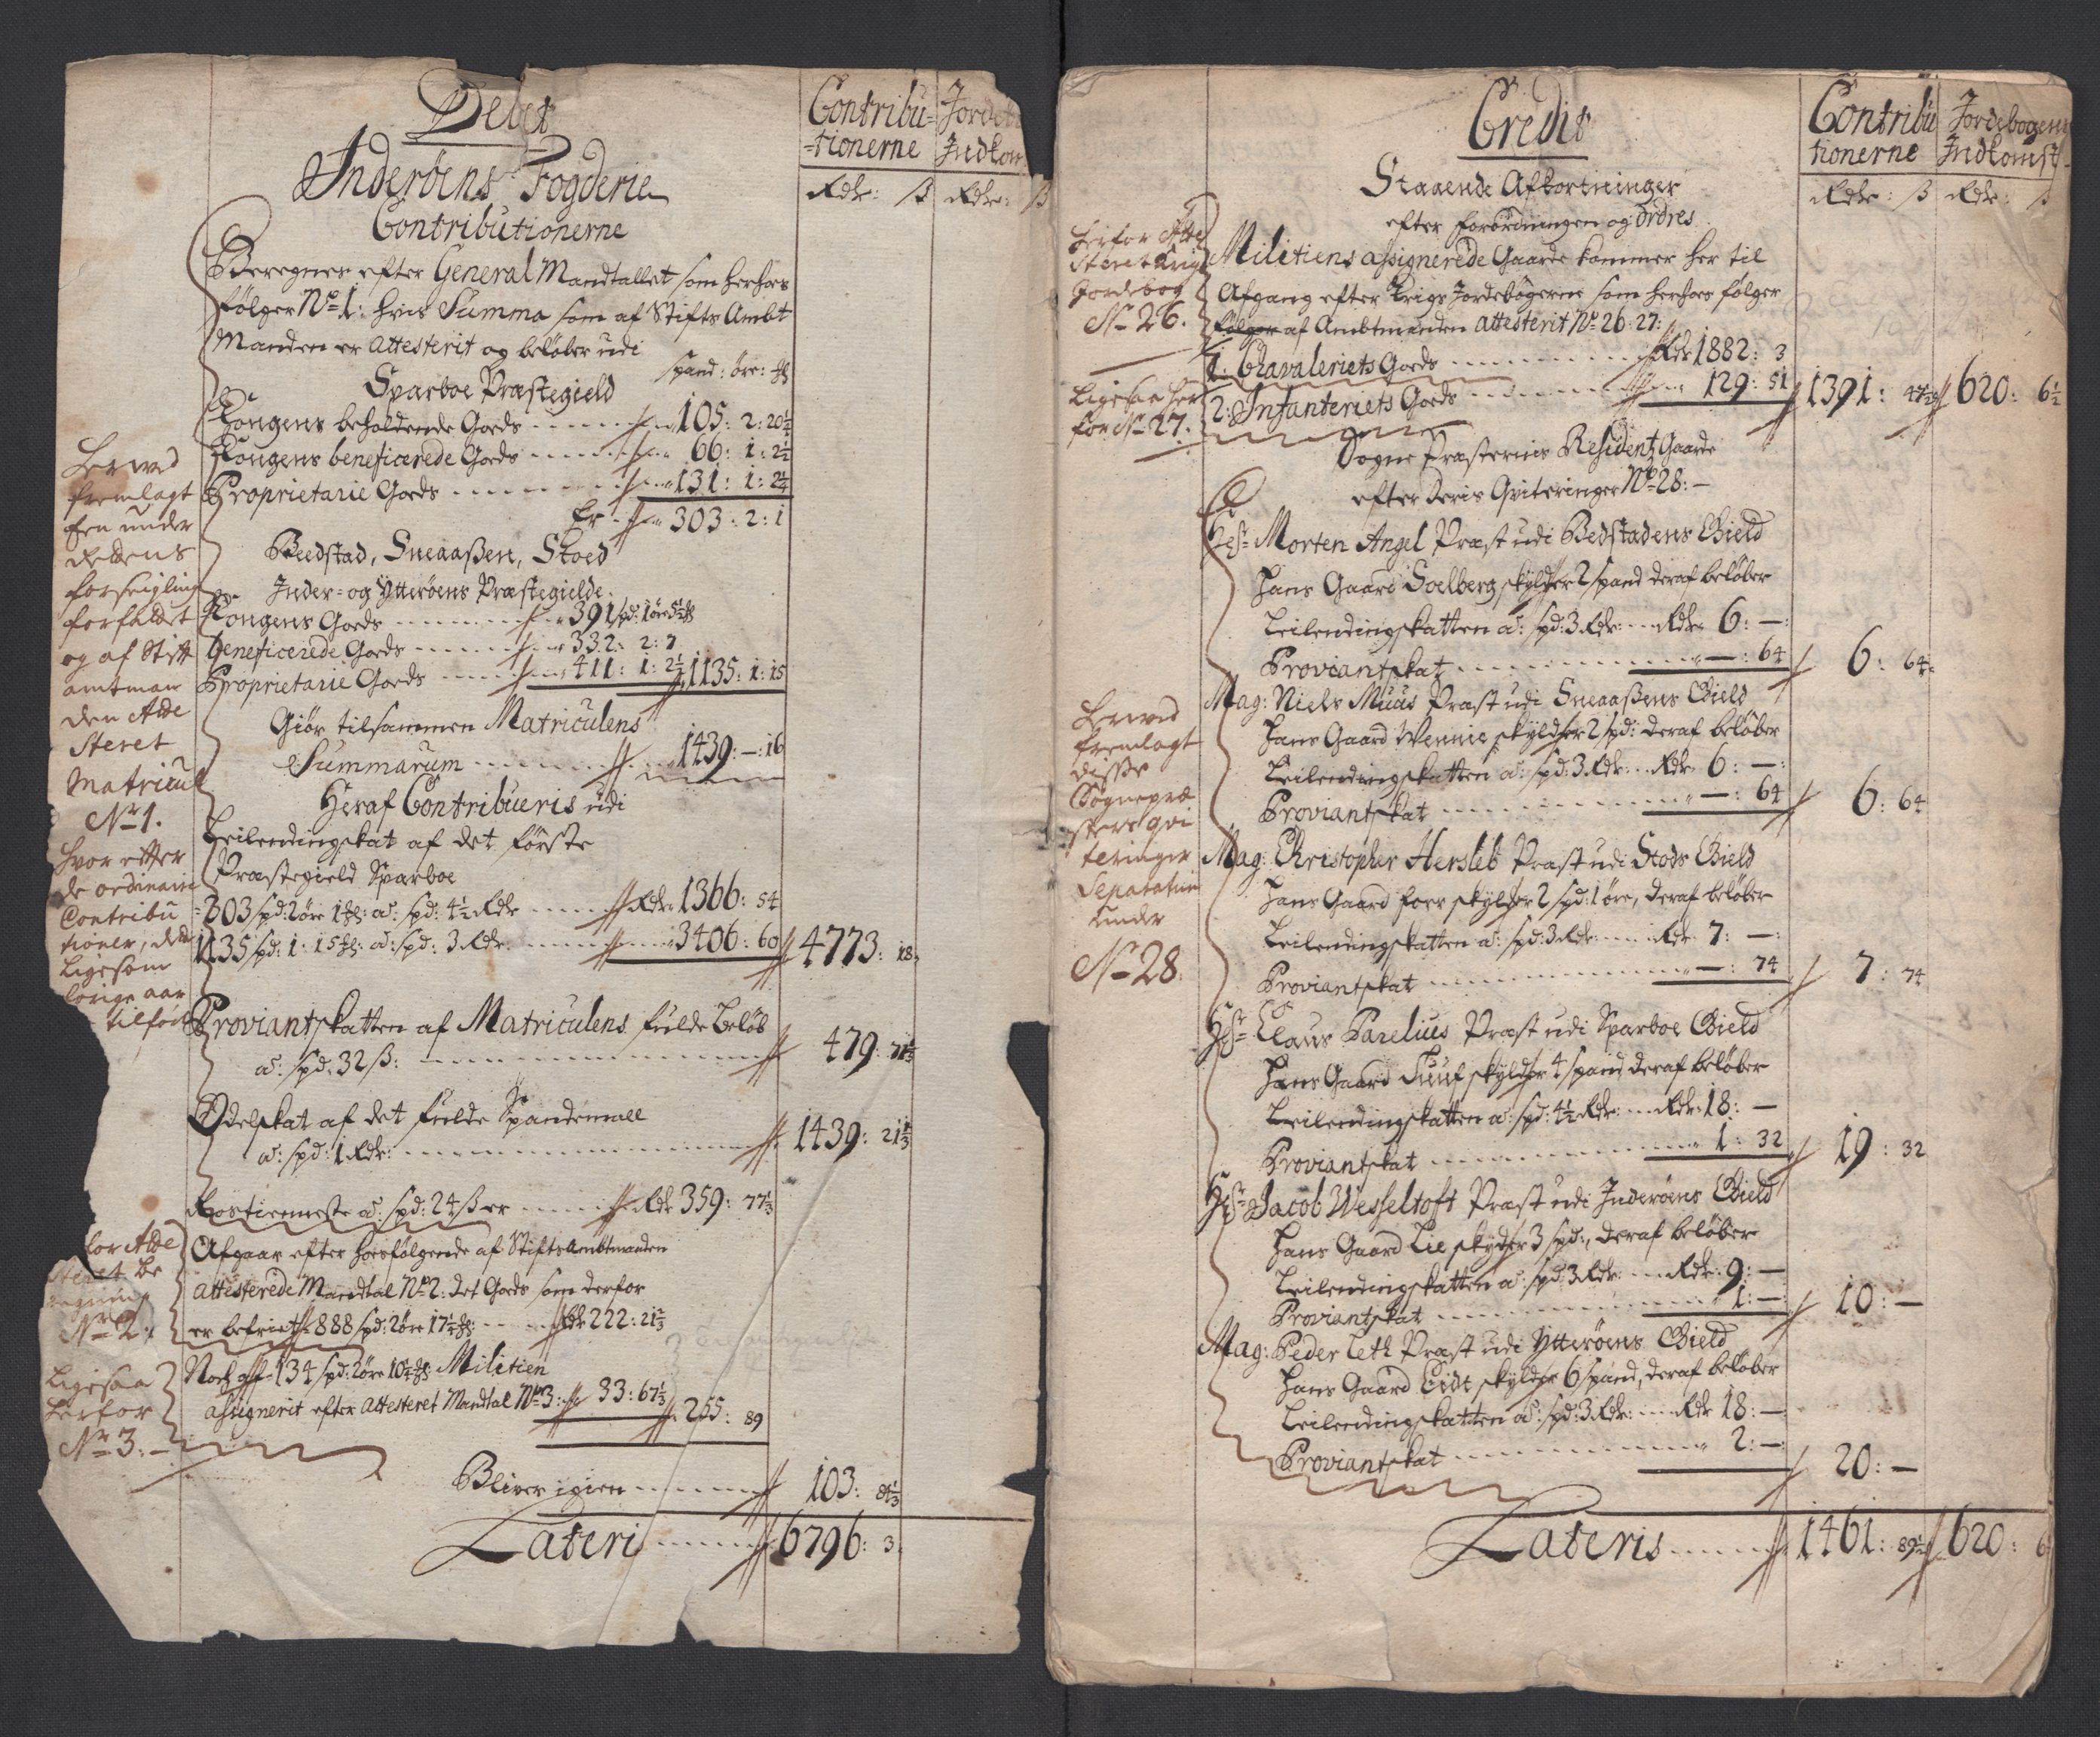 Debet
Contribu=
-tionerne
Inderöens Fogderie
Contributionerne
Rdlr: ß Rdlr: ß
Beregnes efter General Mandtallet som herhos
følger No 1: hvis Summa som af Stifts Ambt
Manden er attesterit og beløber udi
Sparboe Præstegield
spand: öre:
Kongens beholdende Gods 105: 2: 20½
Kongens beneficerede Gods 66: 1: 2½
Proprietarie Gods 131: 1: 2¼
Er 303: 2: 1
Beedstad, Sneaaßen, Stoed
Inder= og Ytteröens Præstegielde.
Kongens Gods 391 spd: 1 öre
beneficerede Gods 332: 2: 7
Proprietarie Gods 411: 1: 2½ 1135: 1: 15
Giör tilsammen Matriculens
Summarum 1439: —: 16
Heraf Contribueris udi
Leilendingskat af det förste
Præstegield Sparboe
303 spd: 2 öre 1 a: spd: 4½ Rdlr Rdlr 1366: 54
1135 spd: 1: 15 a: spd: 3 Rdlr: 3406: 60 4773: 18
Proviantskatten af Matriculens fulde Beløb
a: spd: 32 ß: 479: 71½
Odelskat af det fulde Spandemall
a: spd: 1 Rdlr: 1439: 21⅓
Rostienneste a: spd: 24 ß er Rdlr 359: 77⅓
Afgaar efter hosfølgende af Stifts Ambtmanden
attesterede Mandtal No 2: det Gods som derfor
er befriet 888 spd: 2 öre 17½ Rdlr 222: 21⅔
Noch aff 134 spd: 2 öre 10 Militien
assignerit efter attesteret Mandtal No 3: 33: 67⅓ 255: 89
Bliver igien 103:
Lateris 6796: 3
fremlagt
under
forseigling
og af Stift
amtman
den Atte
steret
Matricul
No 1.
Hvor efter
de ordinaire
Contribu
tioner,
Ligesom
forige aar
tilført
for Atte
steret be
No 2.
Ligesaa
herfor
No 3:
Credit
Contribu
tionerne
Jordebogens
Indkomst
Staaende Afkortninger
efter forordningen og Ordres
Rdlr: ß Rdlr: ß
Militiens assignerede Gaarde kommer her til
Afgang efter Krigs Jordebøgerne som herhos følger
følger af Ambtmanden attesterit No 26: 27:
1: Chavaleriets Gods Rdlr 1882: 3
2: Infanteriets Gods 129: 51 1391: 620: 6½
Sogne Præsternis Residentz Gaarde
efter deris Qviteringer No 28: —
Hr Morten Angel Præst udi Bedstadens Gield
hans Gaard Soelberg skylder 2 spand deraf beløber
Leilendingskatten a: spd: 3 Rdlr: Rdlr 6: —:
Proviantskat —: 64 6: 64
Mag: Niels Muus Præst udi Sneaaßens Gield
hans Gaard Wennie, skylder 2 spd: deraf beløber
Leilendingskatten a: spd: 3 Rdlr: Rdlr 6: —:
Proviantskat —: 64 6: 64
Mag: Christopher Hersleb Præst udi Stods Gield
hans Gaard Foer skylder 2 spd: 1 öre, deraf beløber
Leilendingskatten a: spd: 3 Rdlr: Rdlr 7: —:
Proviantskat —: 74 7: 74
Hr Claus Parelius Præst udi Sparboe Gield
hans Gaard Tuuf skylder 4 spand deraf beløber
Leilendingskatten a: spd: 4½ Rdlr: Rdlr: 18: —
Proviantskat 1: 32 19: 32
Hr Jacob Wesseltoft Præst udi Inderöens Gield
hans Gaard Lie skylder 3 spd:, deraf beløber
Leilendingskatten a: spd: 3 Rdlr: Rdlr: 9: —
Proviantskat 1: — 10: —
Mag: Peder Leth Præst udi Ytteröens Gield
hans Gaard Eidt skylder 6 spand, deraf beløber
Leilendingskatten a: spd: 3 Rdlr: Rdlr 18: —
Proviantskat 2: — 20: —
Lateris 1461: 89½ 620: 6
herfor Atte
steret Krigs
Jordebog
No 26.
Ligesaa her
for No 27.
herved
fremlagt
disse
Sognepræ
sters qvi
teringer
under
No 28.